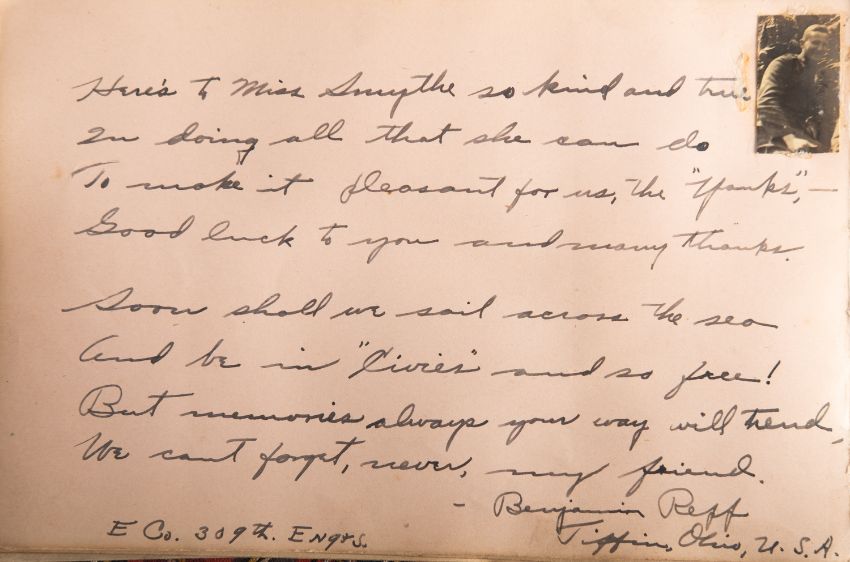 Here's to Miss Smythe so kind and true
In doing all that she can do
To make it pleasant for us, the "Yanks", —
Good luck to you and many thanks.
Soon shall we sail across the sea
And be in "Civies" and so free!
But memories always your way will trend,
We cant forget, never, my friend.
- Benjamin Reff
E Co. 309th. Engrs.
Tiffin, Ohio, U.S.A.